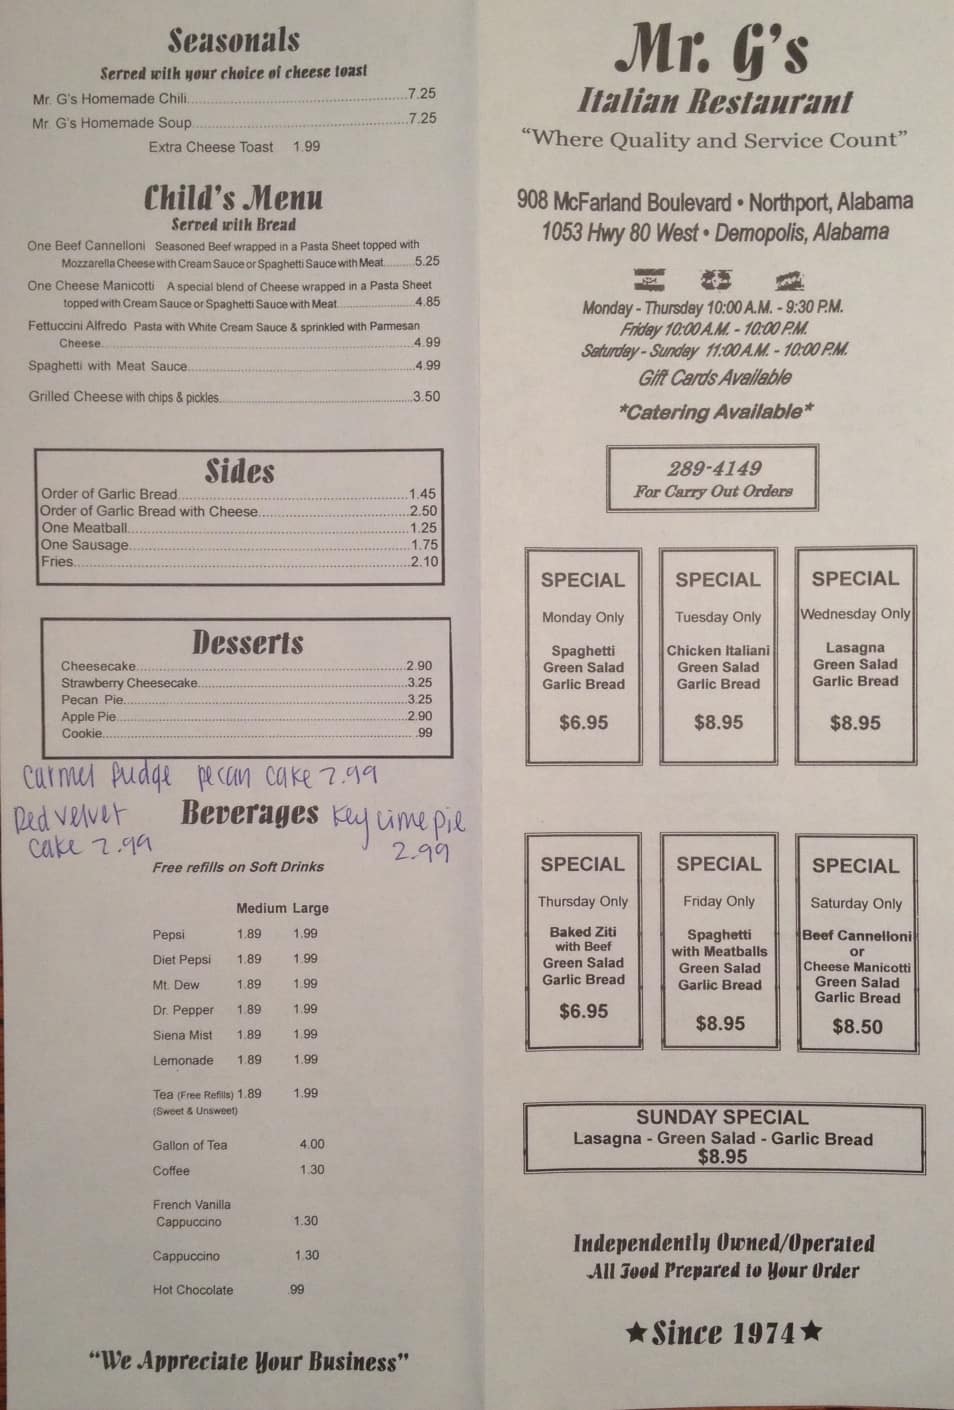 Seasonals
Served with your choice of cheese toast
Mr. G's Homemade Chili..........7.25
Mr. G's Homemade Soup..........7.25
Extra Cheese Toast 1.99
Child's Menu
Served with Bread
One Beef Cannelloni Seasoned Beef wrapped in a Pasta Sheet topped with
Mozzarella Cheese with Cream Sauce or Spaghetti Sauce with Meat..........5.25
One Cheese Manicotti A special blend of Cheese wrapped in a Pasta Sheet
topped with Cream Sauce or Spaghetti Sauce with Meat..........4.85
Fettuccini Alfredo Pasta with White Cream Sauce & sprinkled with Parmesan
Cheese..........4.99
Spaghetti with Meat Sauce..........4.99
Grilled Cheese with chips & pickles..........3.50
Sides
Order of Garlic Bread..........1.45
Order of Garlic Bread with Cheese..........2.50
One Meatball..........1.25
One Sausage..........1.75
Fries..........2.10
Desserts
Cheesecake..........2.90
Strawberry Cheesecake..........3.25
Pecan Pie..........3.25
Apple Pie..........2.90
Cookie...........99
Carmel fudge pecan cake 2.99
Red Velvet
cake 2.99
Beverages
Key Lime pie
2.99
Free refills on Soft Drinks
Medium Large
Pepsi 1.89 1.99
Diet Pepsi 1.89 1.99
Mt. Dew 1.89 1.99
Dr. Pepper 1.89 1.99
Siena Mist 1.89 1.99
Lemonade 1.89 1.99
Tea (Free Refills) 1.89 1.99
(Sweet & Unsweet)
Gallon of Tea 4.00
Coffee 1.30
French Vanilla
Cappuccino 1.30
Cappuccino 1.30
Hot Chocolate .99
"We Appreciate Your Business"
Mr. G's
Italian Restaurant
"Where Quality and Service Count"
908 McFarland Boulevard • Northport, Alabama
1053 Hwy 80 West • Demopolis, Alabama
Monday - Thursday 10:00 A.M. - 9:30 P.M.
Friday 10:00 A.M. - 10:00 P.M.
Saturday - Sunday 11:00 A.M. - 10:00 P.M.
Gift Cards Available
*Catering Available*
289-4149
For Carry Out Orders
SPECIAL
Monday Only
Spaghetti
Green Salad
Garlic Bread
$6.95
SPECIAL
Tuesday Only
Chicken Italiani
Green Salad
Garlic Bread
$8.95
SPECIAL
Wednesday Only
Lasagna
Green Salad
Garlic Bread
$8.95
SPECIAL
Thursday Only
Baked Ziti
with Beef
Green Salad
Garlic Bread
$6.95
SPECIAL
Friday Only
Spaghetti
with Meatballs
Green Salad
Garlic Bread
$8.95
SPECIAL
Saturday Only
Beef Cannelloni
or
Cheese Manicotti
Green Salad
Garlic Bread
$8.50
SUNDAY SPECIAL
Lasagna - Green Salad - Garlic Bread
$8.95
Independently Owned/Operated
All Food Prepared to Your Order
★Since 1974★